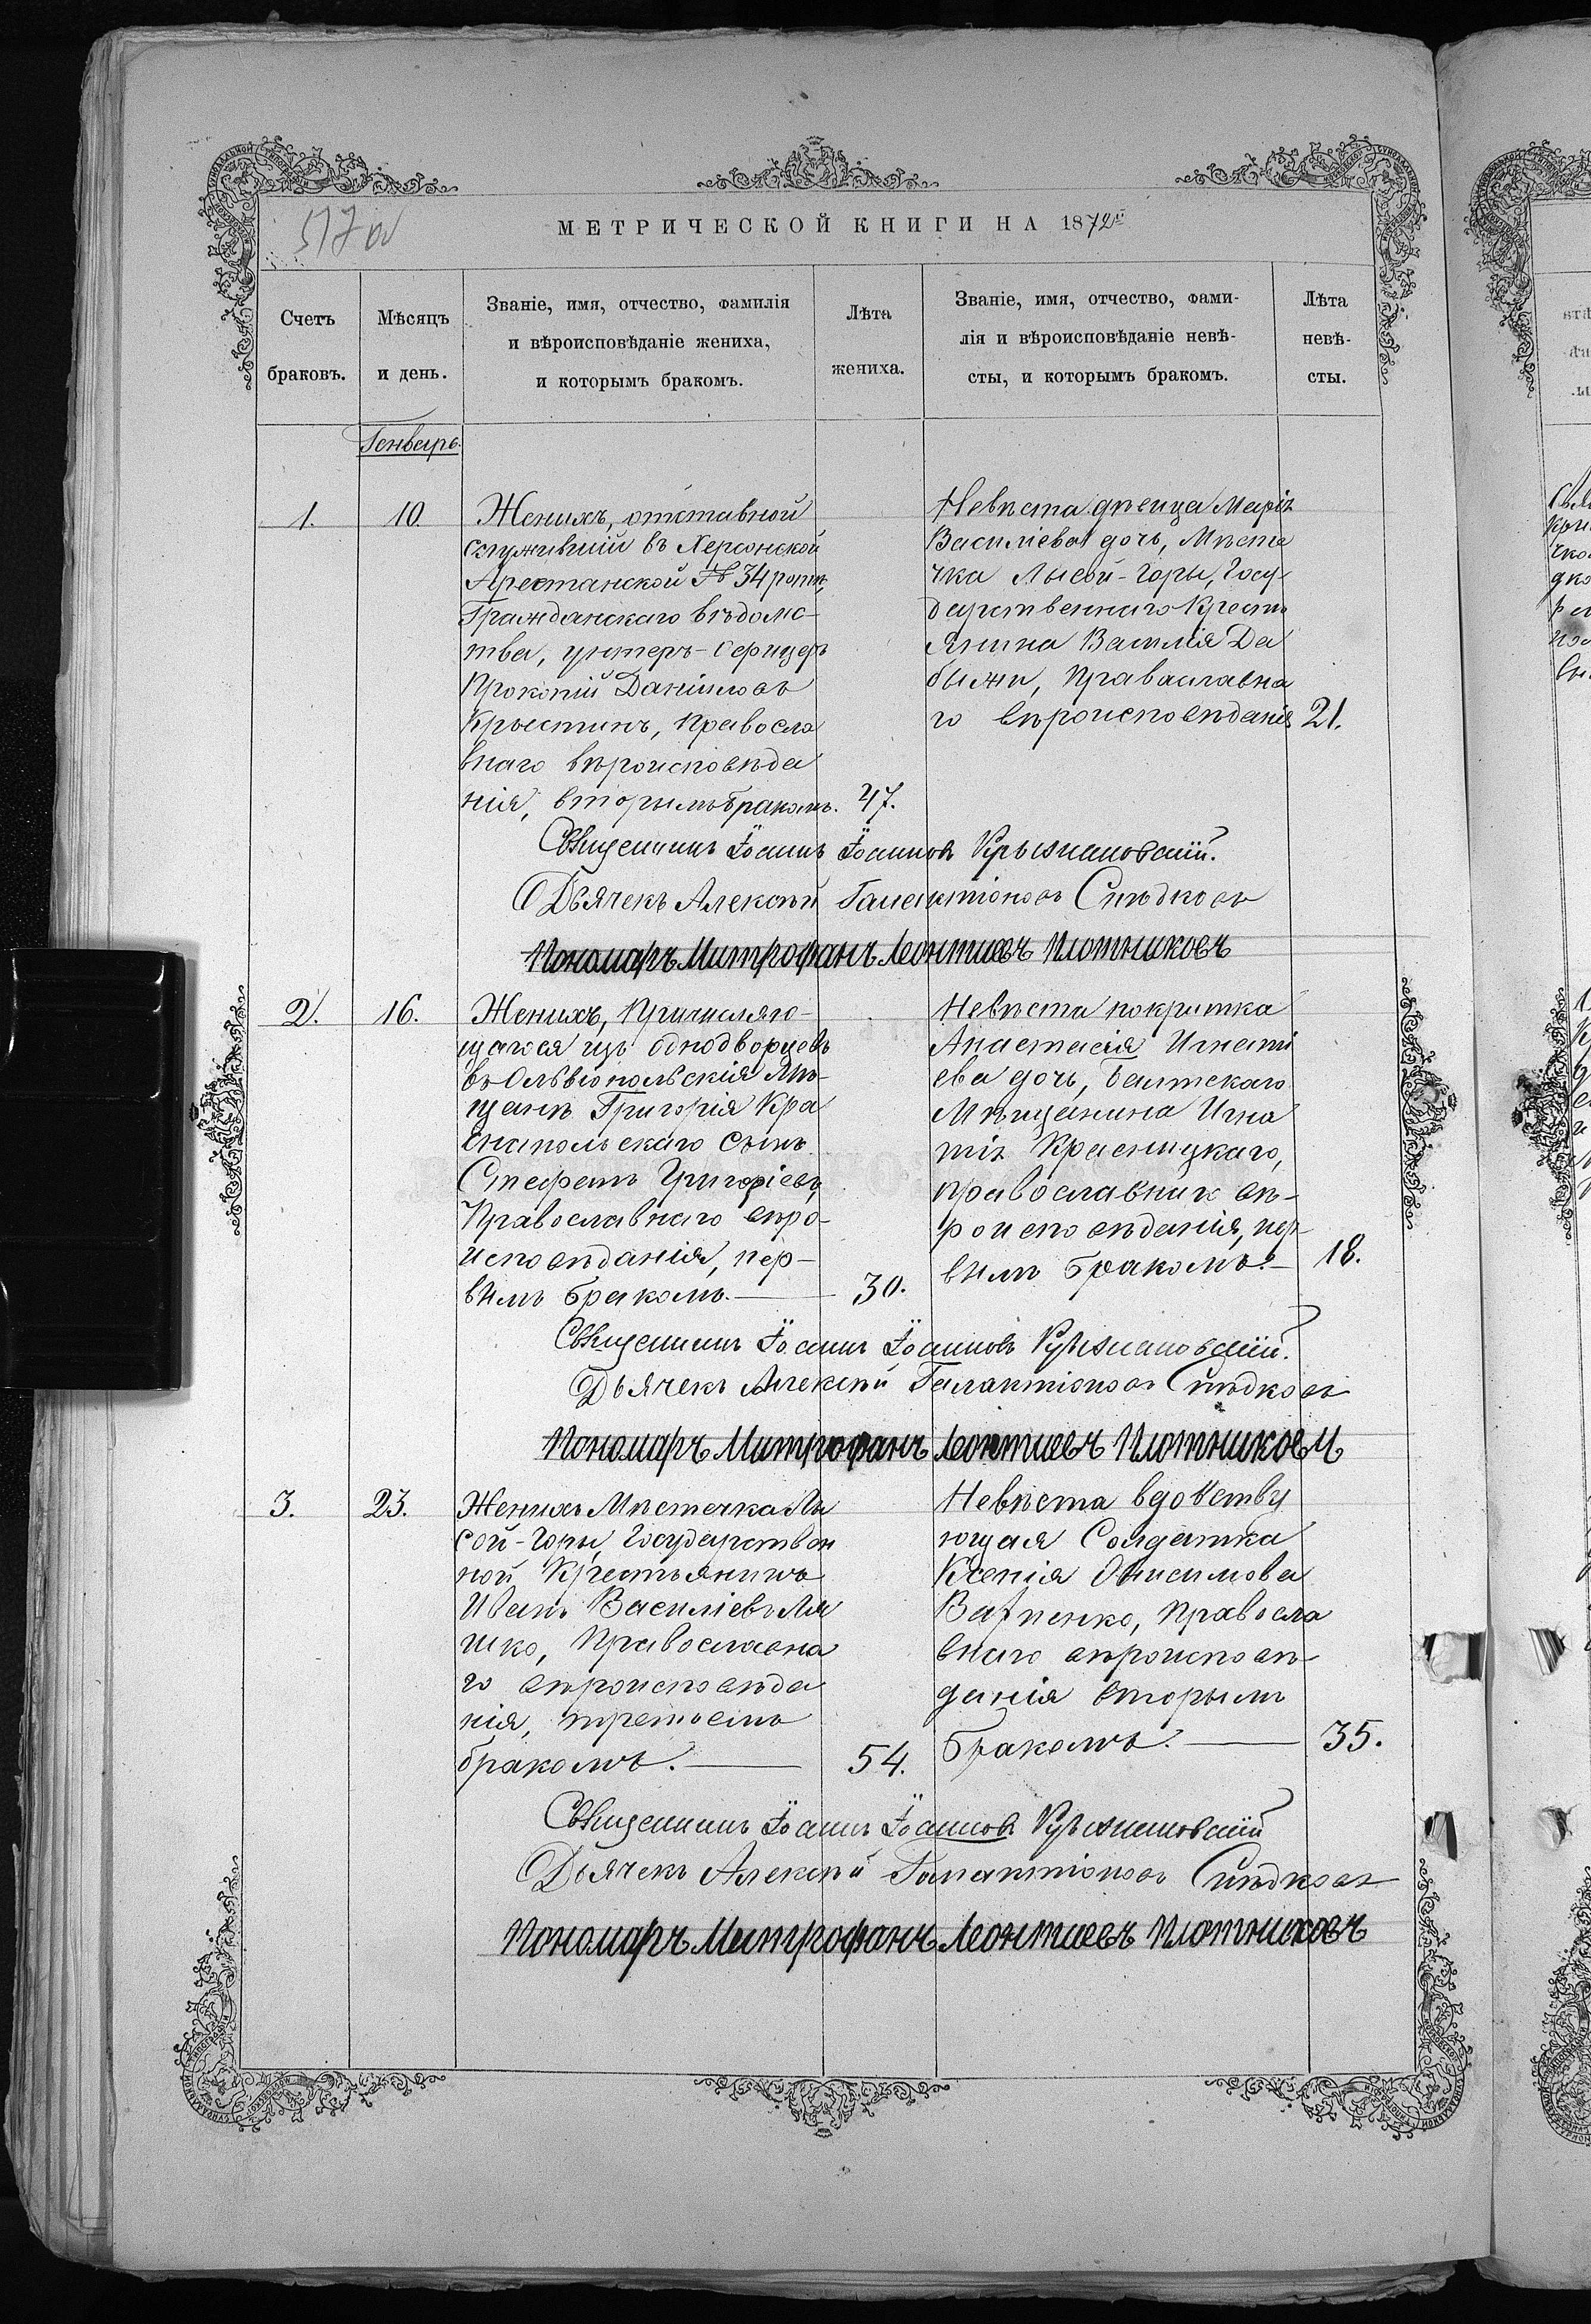 МЕТРИЧЕСКОЙ КНИГИ НА 1872й
Счетъ браковъ.
Мѣсяцъ и день.
Званіе, имя, отчество, фамилія
и вѣроисповѣданіе жениха,
и которымъ бракомъ.
Лѣта жениха.
Званіе, имя, отчество, фами-
лія и вѣроисповѣданіе невѣ-
сты, и которымъ бракомъ.
Лѣта невѣ-
сты.
Генварь.
1.
10
Женихъ, отставной
служившій въ Херсонской
Арестанской № 34 ротѣ,
Гражданскаго вѣдомс-
тва, унтеръ-Офицеръ
Прокопій Даніиловъ
Крыстинъ, Правосла
внаго вѣроисповѣда
нія, вторымъ бракомъ.
47.
Невѣста дѣвица Марія
Василіева дочь, Мѣсте
чка Лысой-Горы, Госу-
дарственнаго Крестъ
янина Василія Да
быжи, Праваславна
го вѣроисповѣданія
21.
Священникъ Іоаннъ Іоанновъ Крыжановскій.
Дьячекъ Алексѣй Галактіоновъ Сѣдковъ
Пономарь Митрофанъ Леонтиевъ Плотниковъ
2.
16.
Женихъ, Причисляю-
щагося изъ однодворцевъ
въ Ольвіопольскія Мѣ-
щане Григорія Кра
снапольскаго сынъ
Стефанъ Григоріевъ,
Православнаго вѣро-
исповѣданія, пер-
вимъ бракомъ.
30.
Невѣста покритка
Анастасія Игнаті
ева дочь, Балтскаго
Мѣщанина Игна
тія Красницкаго,
православнаго вѣ-
роисповѣданія, пер-
вимъ бракомъ.
18.
Священникъ Іоаннъ Іоанновъ Крыжановскій.
Дьячекъ Алексѣй Галактіоновъ Сѣдковъ
Пономарь Митрофанъ Леонтиевъ Плотниковъ
3.
23.
Женихъ Мѣстечка Лы
сой-Горы, Государствен
ной Крестьянинъ
Иванъ Василіевъ Ля
шко, Православна
го вѣроисповѣда
нія, третьемъ
бракомъ.
54.
Невѣста вдовству
ющая Солдатка
Ксенія Онисимова
Правосла
внаго вѣроисповѣ
данія вторымъ
бракомъ.
35.
Священникъ Іоаннъ Іоанновъ Крыжановскій
Дьячекъ Алексѣй Галактіоновъ Сѣдковъ
Пономарь Митрофанъ Леонтиевъ Плотниковъ